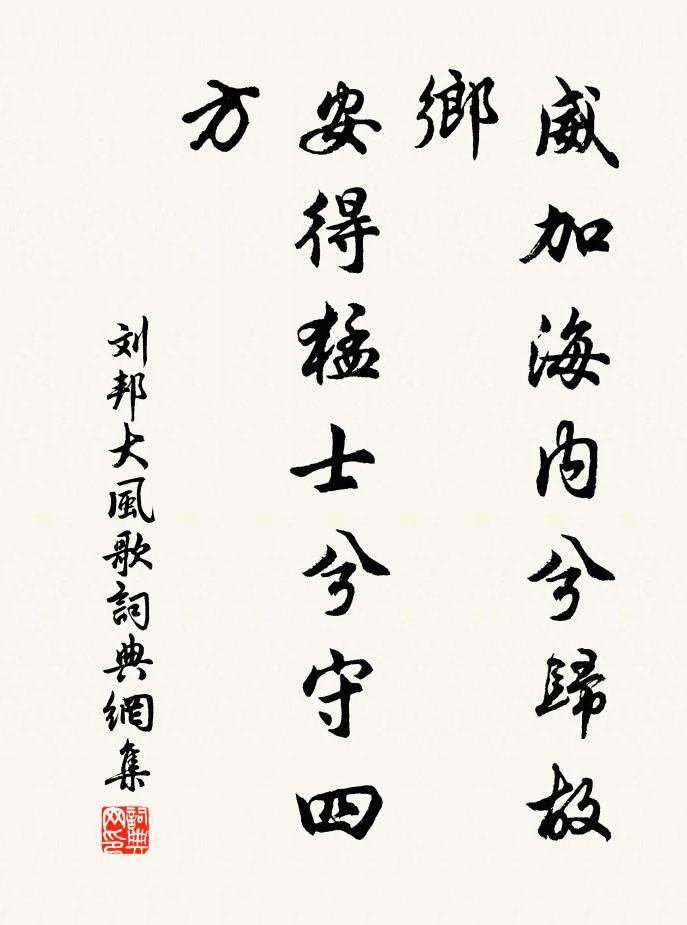 威加海内兮歸故
鄉
安得猛士兮守四
方
刘邦大風歌詞典網集
詞典
网印